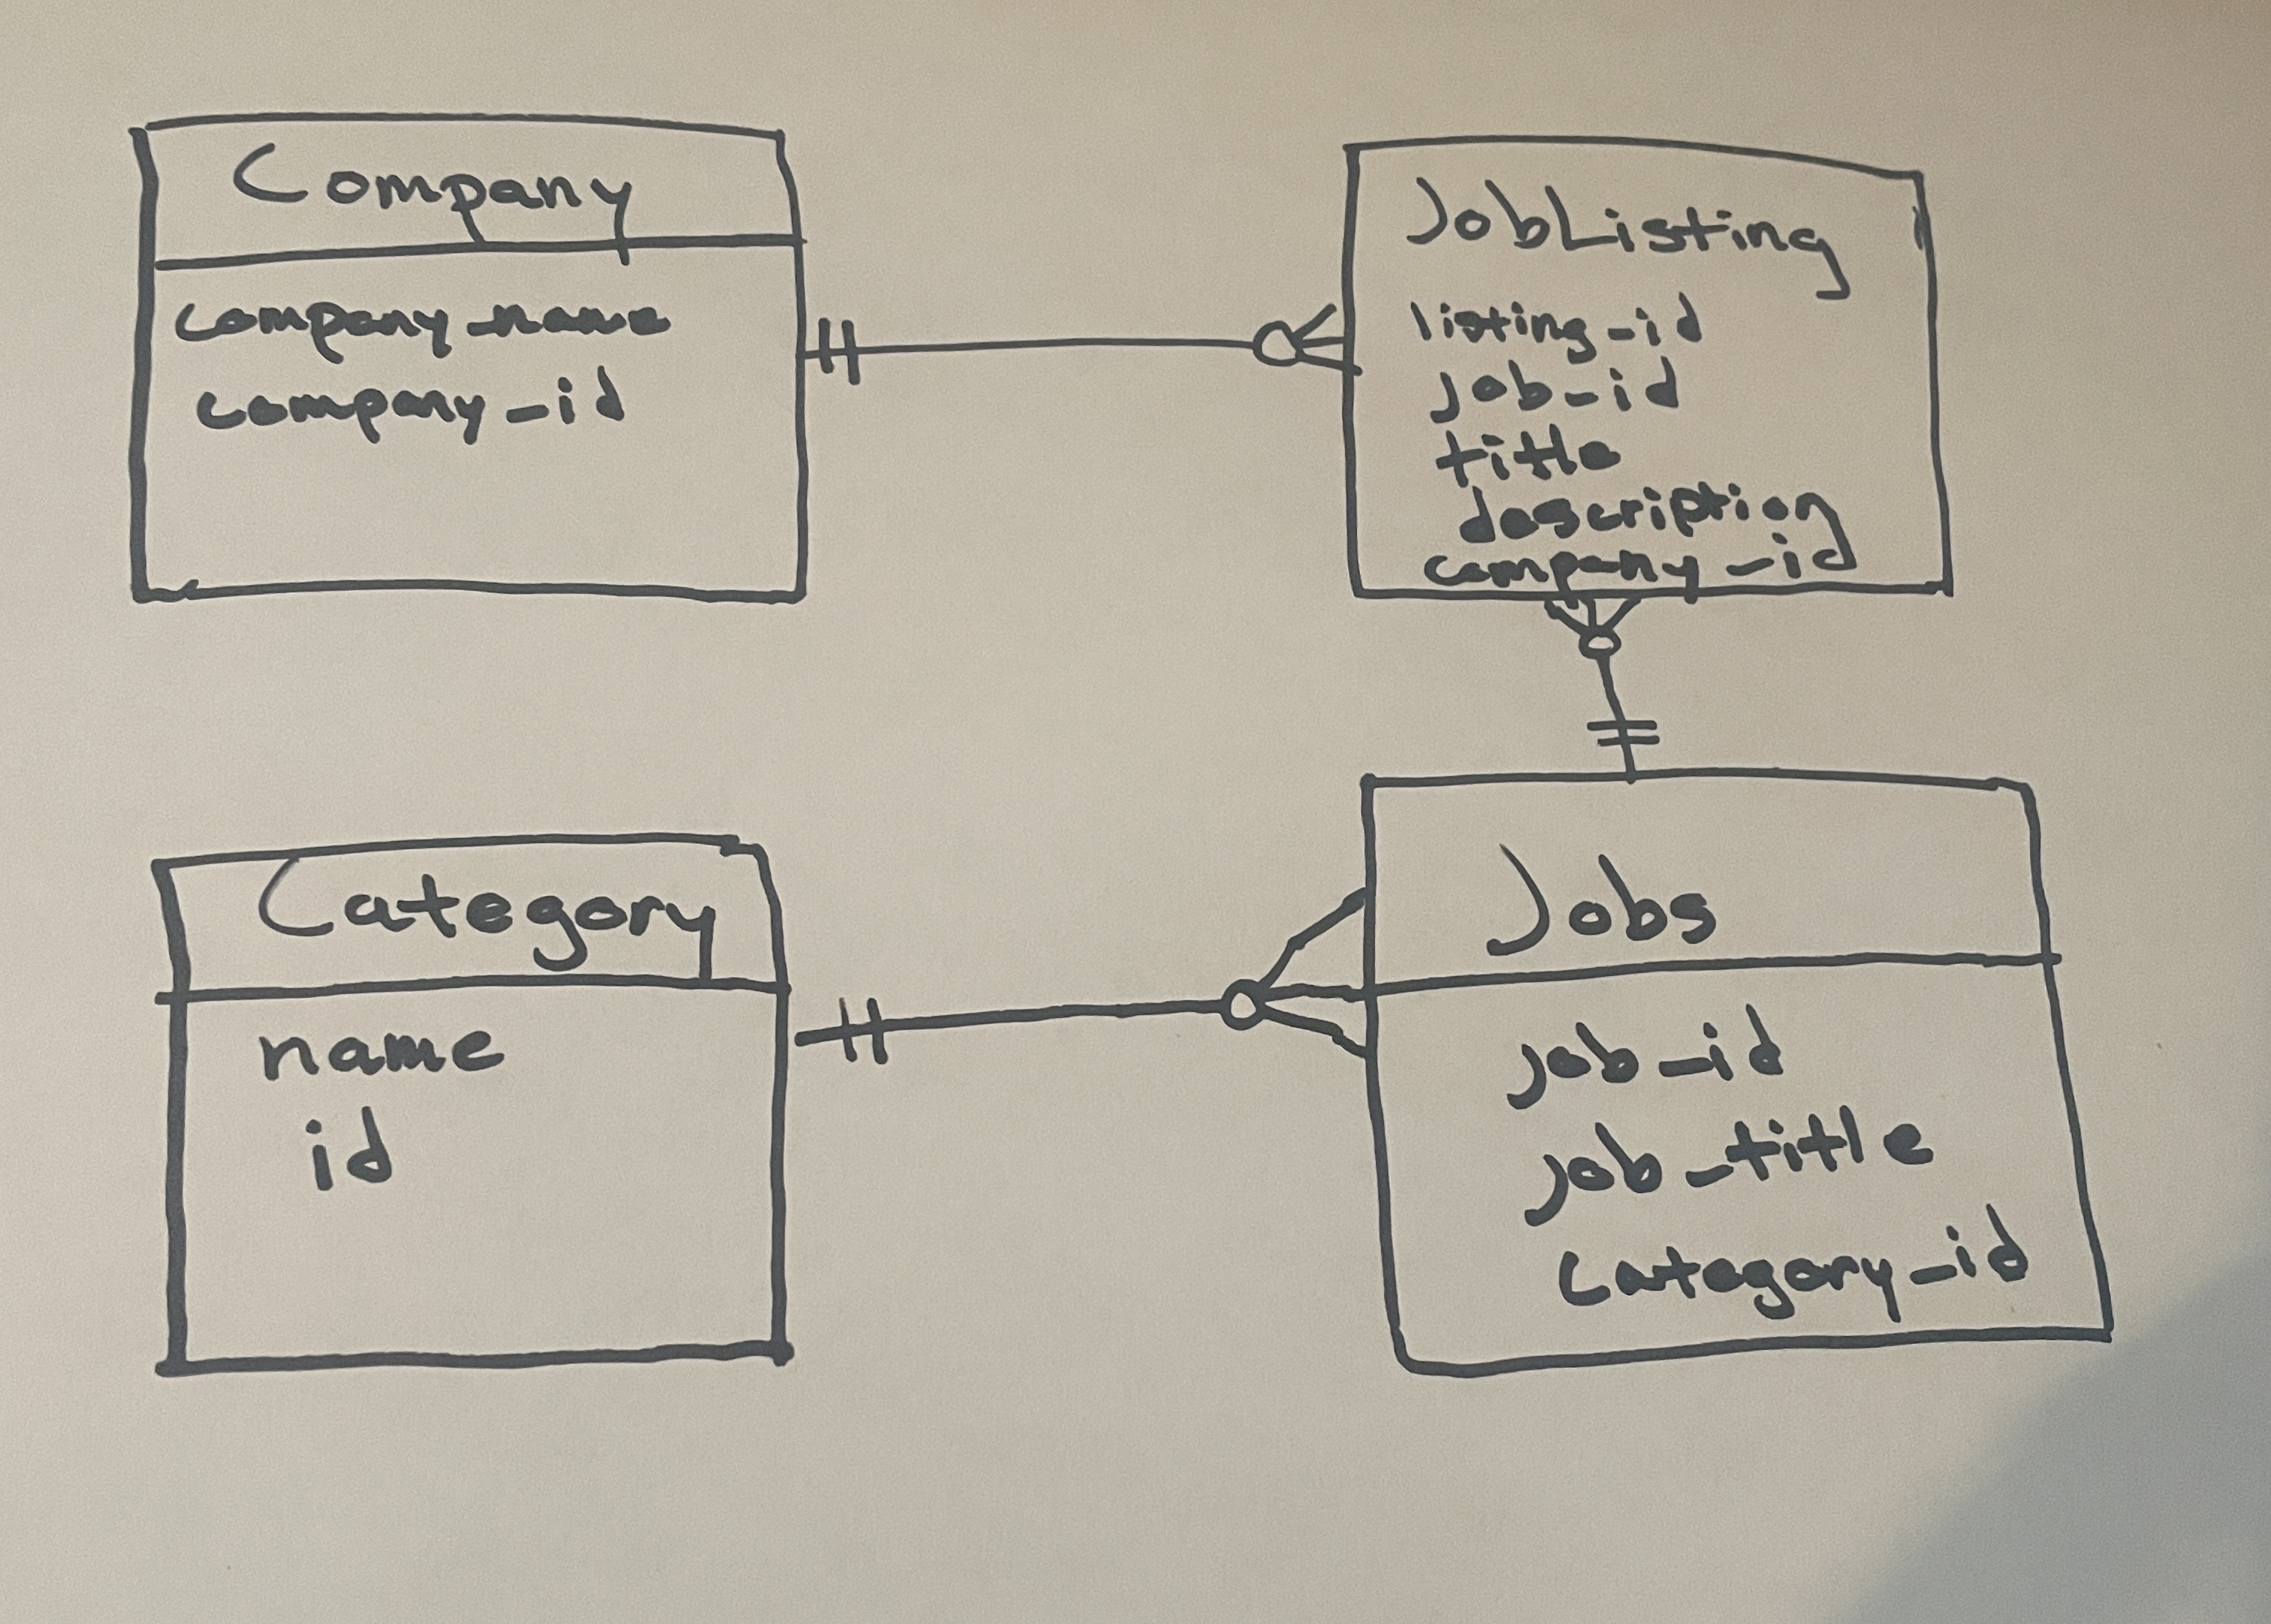 Company
company_name
company_id
JobListing
listing_id
job_id
title
description
company_id
Category
name
id
Jobs
job_id
job_title
category_id